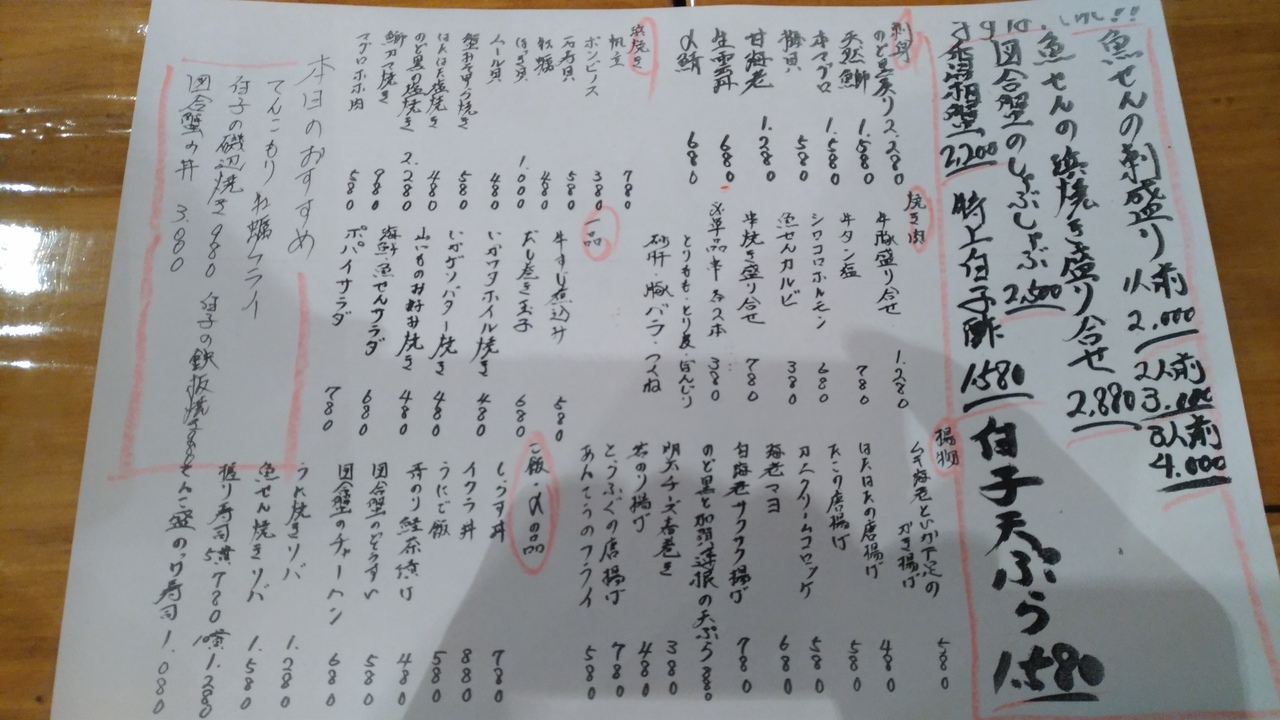 魚せんの刺盛り 1人前 2,000 2人前 3,000 3人前 4,000
魚せんの浜焼き盛り合せ 2,880
団合蟹のしゃぶしゃぶ 2,500
香箱蟹 2,200 特上白子酢 1,580 白子天ぷら 1,580
刺身
のど黒炙り 2,280
天然鰤 1,580
本マグロ 1,580
梅貝 580
甘海老 1,280
生雲丹 680
〆鯖 680
焼き肉
牛豚盛り合せ 1,280
牛タン塩 780
シロコロホルモン 680
魚せんカルビ 380
串焼き盛り合せ 780
単品串 各2本 380
とりもも・とり皮・ぼんじり
砂肝・豚バラ・つくね
揚物
ムキ海老といか下足のかき揚げ 580
はたはたの唐揚げ 480
たこの唐揚げ 580
カニクリームコロッケ 580
海老マヨ 680
白海老サクサク揚げ 780
のど黒と加賀蓮根の天ぷら 880
明太チーズ春巻き 380
岩のり揚げ 480
とうふぐの唐揚げ 780
あんこうのフライ 580
浜焼き
帆立 780
ボンビノス 380
石寿貝 580
牡蠣 480
ほっき貝 1,000
ムール貝 480
蟹みそ甲ら焼き 580
はたはた塩焼き 480
のど黒の塩焼き 2,280
鰤カマ焼き 980
マグロホホ肉 580
一品
牛すじ煮込み 580
だし巻き玉子 680
いかワタホイル焼き 480
いかゲソバター焼き 480
山いものお好み焼き 480
海鮮魚せんサラダ 680
ポパイサラダ 780
ご飯・〆の品
しらす丼 780
イクラ丼 880
うにご飯 580
岩のり鮭茶漬け 480
団合蟹のぞうすい 580
団合蟹のチャーハン 680
うに焼きソバ 1,280
魚せん焼きソバ 1,580
握り寿司 5貫 780 10貫 1,280
てんこ盛のっけ寿司 1,080
本日のおすすめ
てんこもり 牡蠣フライ
白子の磯辺焼き 980 白子の鉄板焼き
団合蟹の丼 3,080